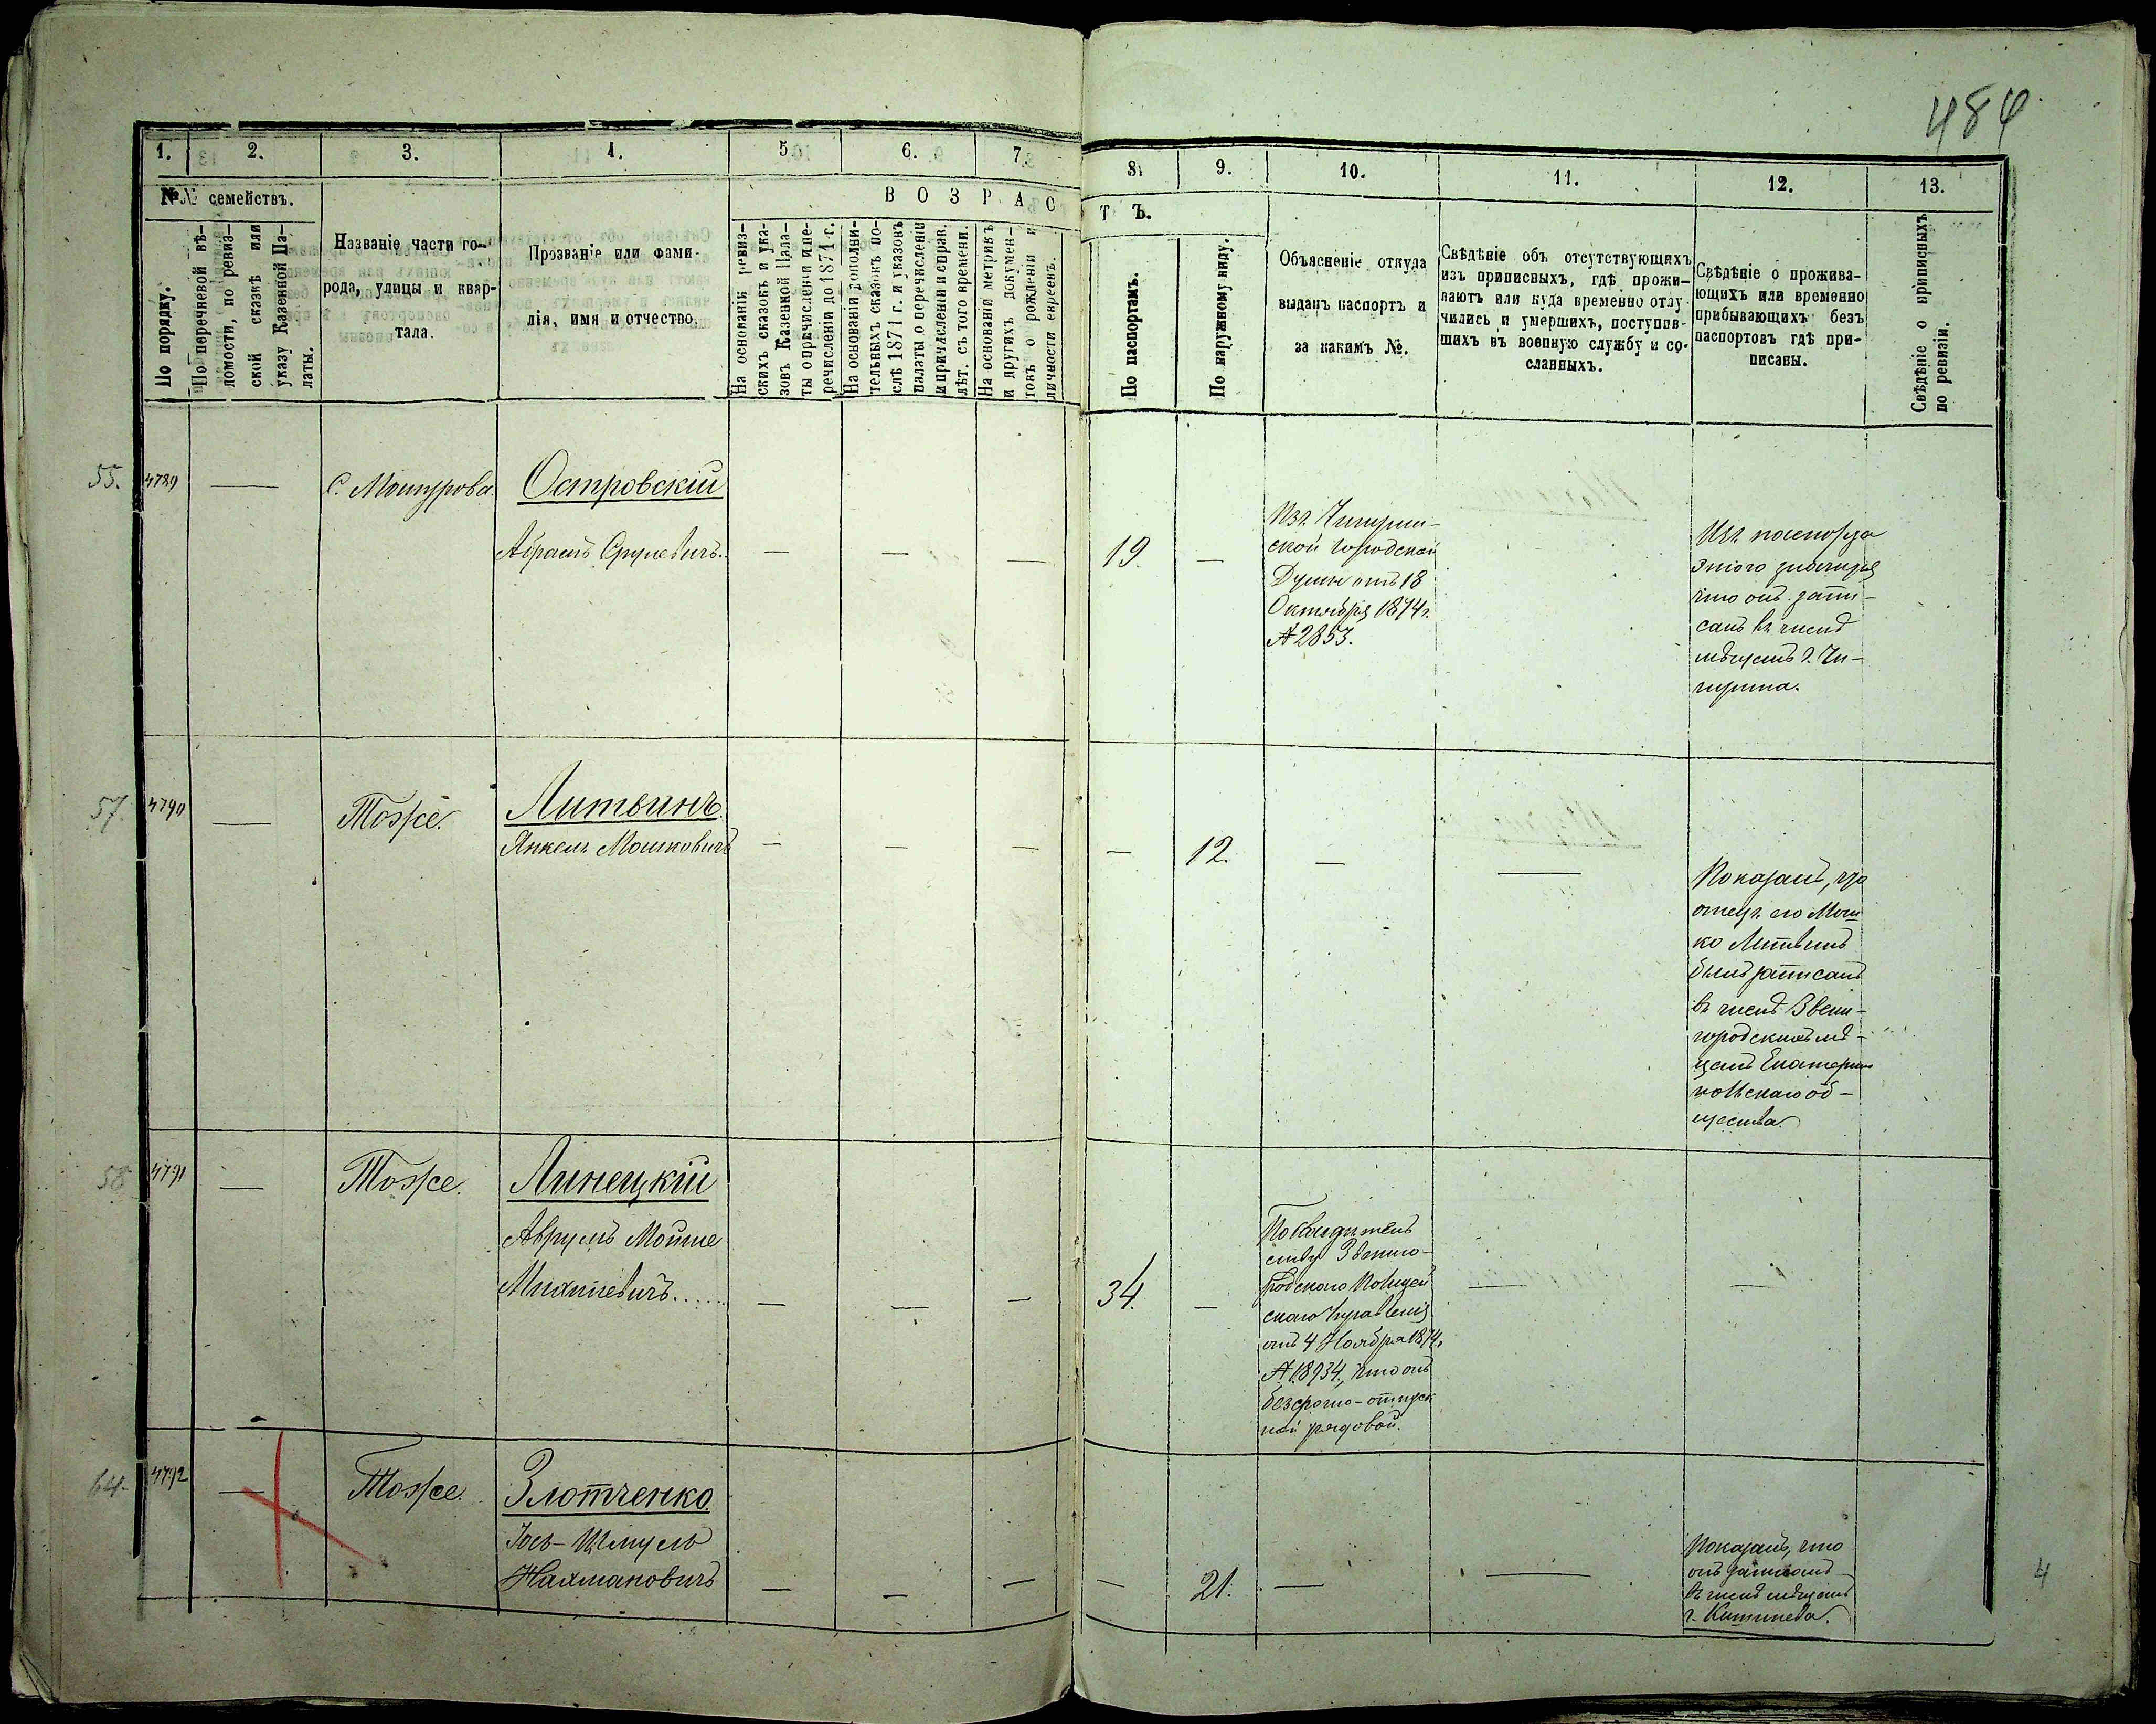 484
1. 2. 3. 4. 5. 6. 7. 8. 9. 10. 11. 12. 13.
№№ семействъ.
В О З Р А С Т Ъ.
По порядку.
По перечневой вѣ-
домости, по ревиз-
ской сказкѣ или
указу Казенной Па-
латы.
Названіе части го-
рода, улицы и квар-
тала.
Прозваніе или фами-
лія, имя и отчество.
На основаніи ревиз-
скихъ сказокъ и ука-
зовъ Казенной Пала-
ты о причисленіи и пе-
речисленіи до 1871 г.
На основаніи дополни-
тельныхъ сказокъ по-
слѣ 1871 г. и указовъ
палаты о перечисленіи
и причисленіи и справ.
лѣт. съ того времени.
На основаніи метрикъ
и другихъ докумен-
товъ о рожденіи и
личности евреевъ.
По паспортамъ.
По наружному виду.
Объясненіе откуда
выданъ паспортъ и
за какимъ №.
Свѣдѣніе объ отсутствующихъ
изъ приписныхъ, гдѣ прожи-
ваютъ или куда временно отлу-
чились и умершихъ, поступив-
шихъ въ военную службу и со-
сланныхъ.
Свѣдѣніе о прожива-
ющихъ или временно
прибывающихъ безъ
паспортовъ гдѣ при-
писаны.
Свѣдѣніе о приписныхъ
по ревизіи.
55. 4789 — С. Мошурова. Островскій
Абрамъ Срулевичъ. — — — 19. —
Изъ Чигирин-
ской городской
Думы отъ 18
Октября 1874 г.
№ 2853.
Изъ паспорта
этого значится
что онъ запи-
санъ въ числѣ
мѣщанъ г. Чи-
гирина.
57. 4790 — Тоже. Литвинъ.
Янкель Мошковичъ — — — — 12. — —
Показалъ, что
отецъ его Мош
ко Литвинъ
былъ записанъ
въ числѣ Звени-
городскихъ мѣ-
щанъ Екатерино
польскаго об-
щества.
58 4791 — Тоже. Линецкій
Аврумъ Мойше
Михилевичъ...... — — — 34. — — —
По свидѣтель
ству Звениго-
родского Полицей
скаго Управленія
отъ 4 Ноября 1874 г.
№ 18934, что онъ
безсрочно-отпуск
ной рядовой.
64. 4792 — Тоже. Злотченко.
Іось-Шмуль
Нахмановичъ — — — — 21. — —
Показалъ, что
онъ записанъ
въ числѣ мѣщанъ
г. Кишинева.
4